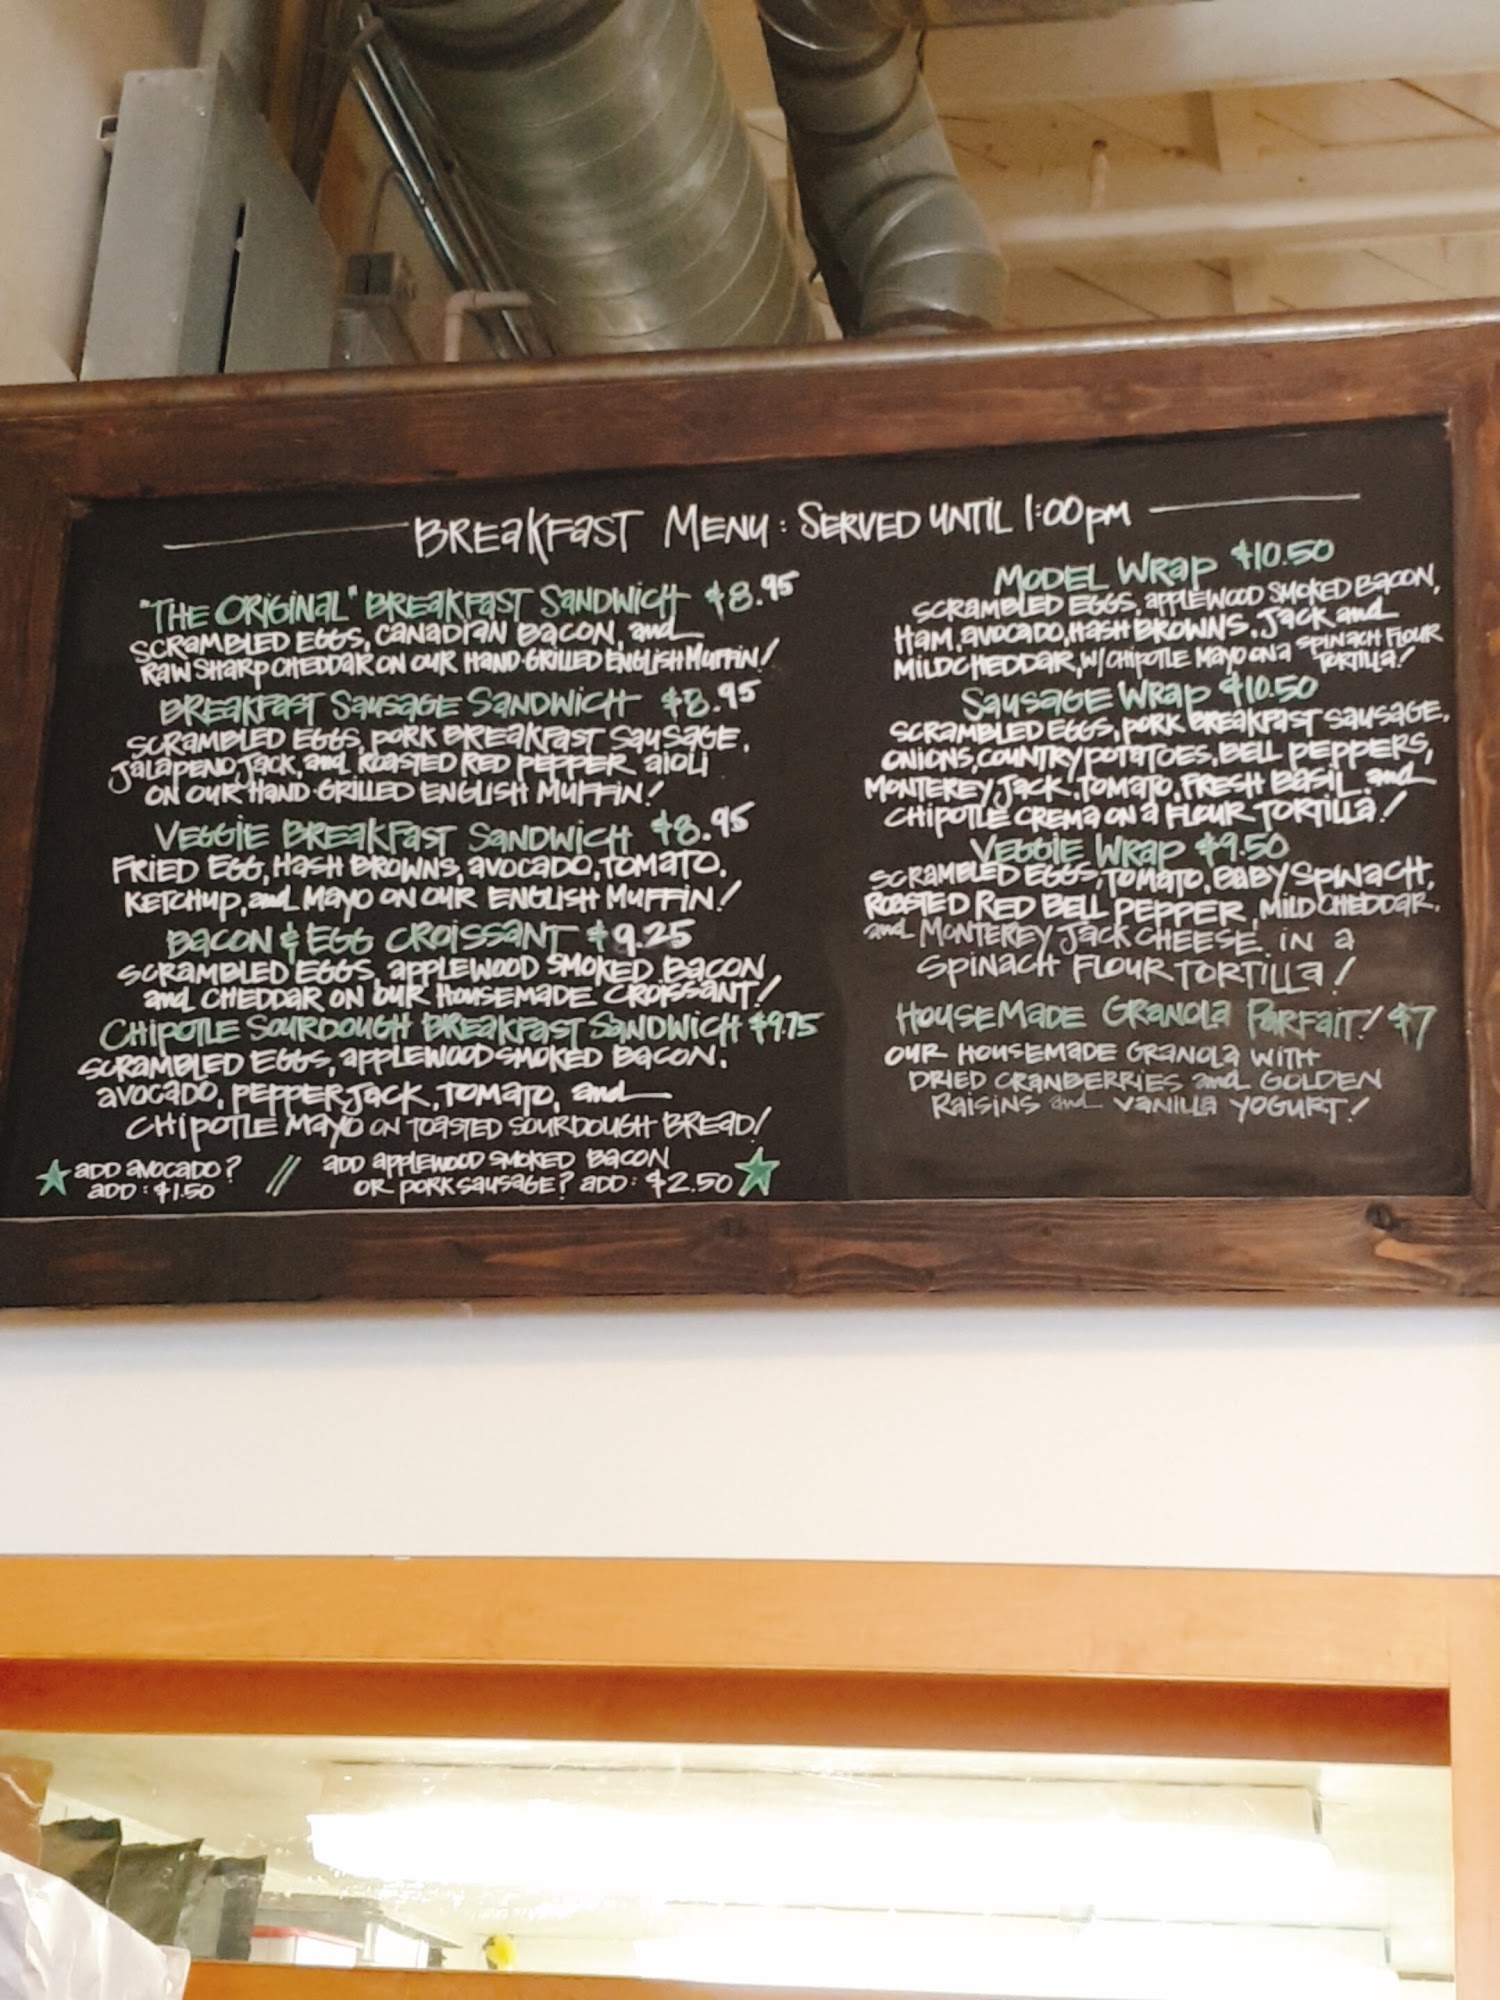 BREAKFAST MENU: SERVED UNTIL 1:00PM
"THE ORIGINAL" BREAKFAST SANDWICH $8.95
SCRAMBLED EGGS, CANADIAN BACON, AND
RAW SHARP CHEDDAR ON OUR HAND-GRILLED ENGLISH MUFFIN!
BREAKFAST SAUSAGE SANDWICH $8.95
SCRAMBLED EGGS, PORK BREAKFAST SAUSAGE,
JALAPENO JACK, AND ROASTED RED PEPPER AIOLI
ON OUR HAND GRILLED ENGLISH MUFFIN!
VEGGIE BREAKFAST SANDWICH $8.95
FRIED EGG, HASH BROWNS, AVOCADO, TOMATO,
KETCHUP, AND MAYO ON OUR ENGLISH MUFFIN!
BACON & EGG CROISSANT $9.25
SCRAMBLED EGGS, APPLEWOOD SMOKED BACON
AND CHEDDAR ON OUR HOUSEMADE CROISSANT!
CHIPOTLE SOURDOUGH BREAKFAST SANDWICH $9.75
SCRAMBLED EGGS, APPLEWOOD SMOKED BACON,
AVOCADO, PEPPERJACK, TOMATO, AND
CHIPOTLE MAYO ON TOASTED SOURDOUGH BREAD!
ADD AVOCADO? // ADD APPLEWOOD SMOKED BACON
ADD: $1.50 OR PORK SAUSAGE? ADD: $2.50
MODEL WRAP $10.50
SCRAMBLED EGGS, APPLEWOOD SMOKED BACON,
HAM, AVOCADO, HASH BROWNS, JACK AND
MILD CHEDDAR, W/ CHIPOTLE MAYO ON A SPINACH FLOUR
TORTILLA!
SAUSAGE WRAP $10.50
SCRAMBLED EGGS, PORK BREAKFAST SAUSAGE,
ONIONS, COUNTRY POTATOES, BELL PEPPERS,
MONTEREY JACK, TOMATO, FRESH BASIL, AND
CHIPOTLE CREMA ON A FLOUR TORTILLA!
VEGGIE WRAP $9.50
SCRAMBLED EGGS, TOMATO, BABY SPINACH,
ROASTED RED BELL PEPPER, MILD CHEDDAR,
AND MONTEREY JACK CHEESE IN A
SPINACH FLOUR TORTILLA!
HOUSEMADE GRANOLA PARFAIT! $7
OUR HOUSEMADE GRANOLA WITH
DRIED CRANBERRIES AND GOLDEN
RAISINS AND VANILLA YOGURT!